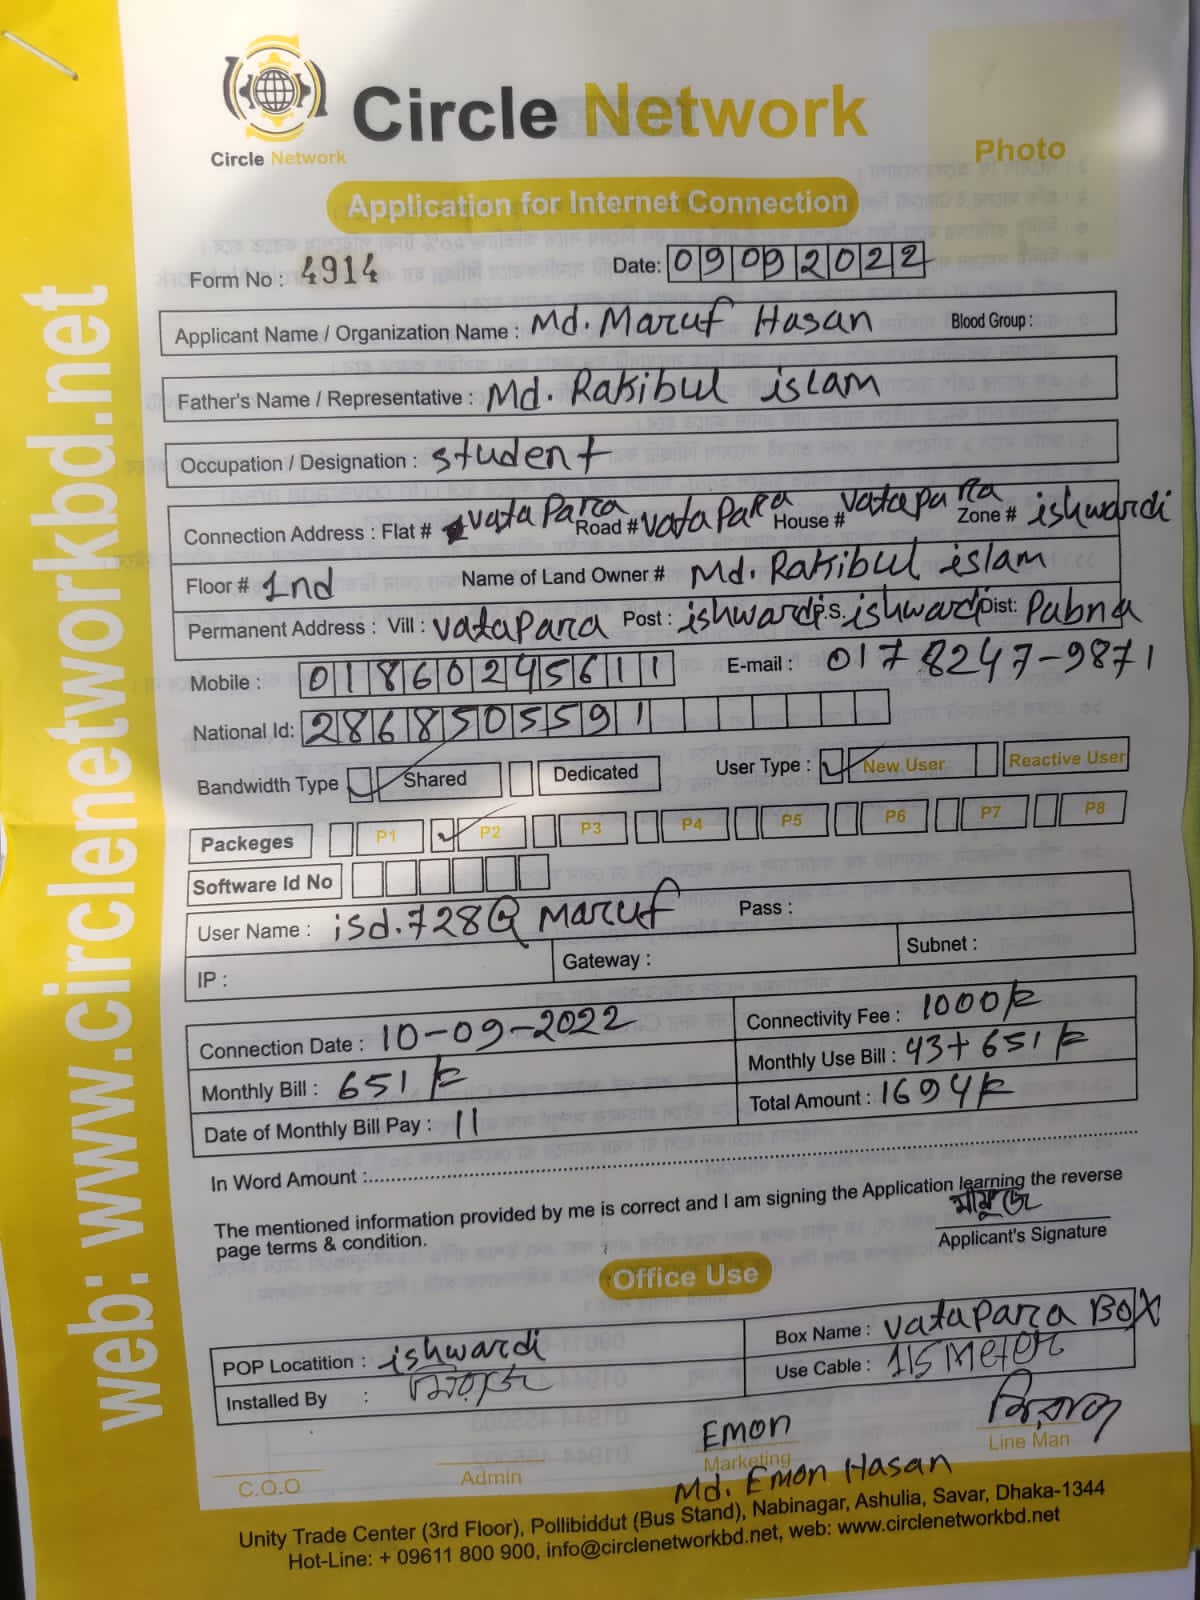 web: www.circlenetworkbd.net
Circle Network
Circle Network
Photo
Application for Internet Connection
Form No : 4914
Date: 09092022
Applicant Name / Organization Name : Md. Maruf Hasan Blood Group :
Father's Name / Representative : Md. Rakibul islam
Occupation / Designation : student
Connection Address : Flat # vatapara Road # vatapara House # vatapara Zone # ishwardi
Floor # 1nd Name of Land Owner # Md. Rakibul islam
Permanent Address : Vill : vatapara Post : ishwardi P.S. ishwardi Dist: Pabna
Mobile : 01860245611 E-mail : 0178247-9871
National Id: 2868505591
Bandwidth Type Shared Dedicated User Type : New User Reactive User
Packeges P1 P2 P3 P4 P5 P6 P7 P8
Software Id No
User Name : isd.728@maruf Pass :
IP : Gateway : Subnet :
Connection Date : 10-09-2022 Connectivity Fee : 1000/=
Monthly Bill : 651/= Monthly Use Bill : 43+651/=
Date of Monthly Bill Pay : 11 Total Amount : 1694/=
In Word Amount :
The mentioned information provided by me is correct and I am signing the Application learning the reverse
page terms & condition.
Applicant's Signature
Office Use
POP Locatition : ishwardi Box Name : vatapara BOX
Installed By : Use Cable : 115 Meter
Emon
C.O.O Admin Marketing Line Man
Md. Emon Hasan
Unity Trade Center (3rd Floor), Pollibiddut (Bus Stand), Nabinagar, Ashulia, Savar, Dhaka-1344
Hot-Line: + 09611 800 900, info@circlenetworkbd.net, web: www.circlenetworkbd.net